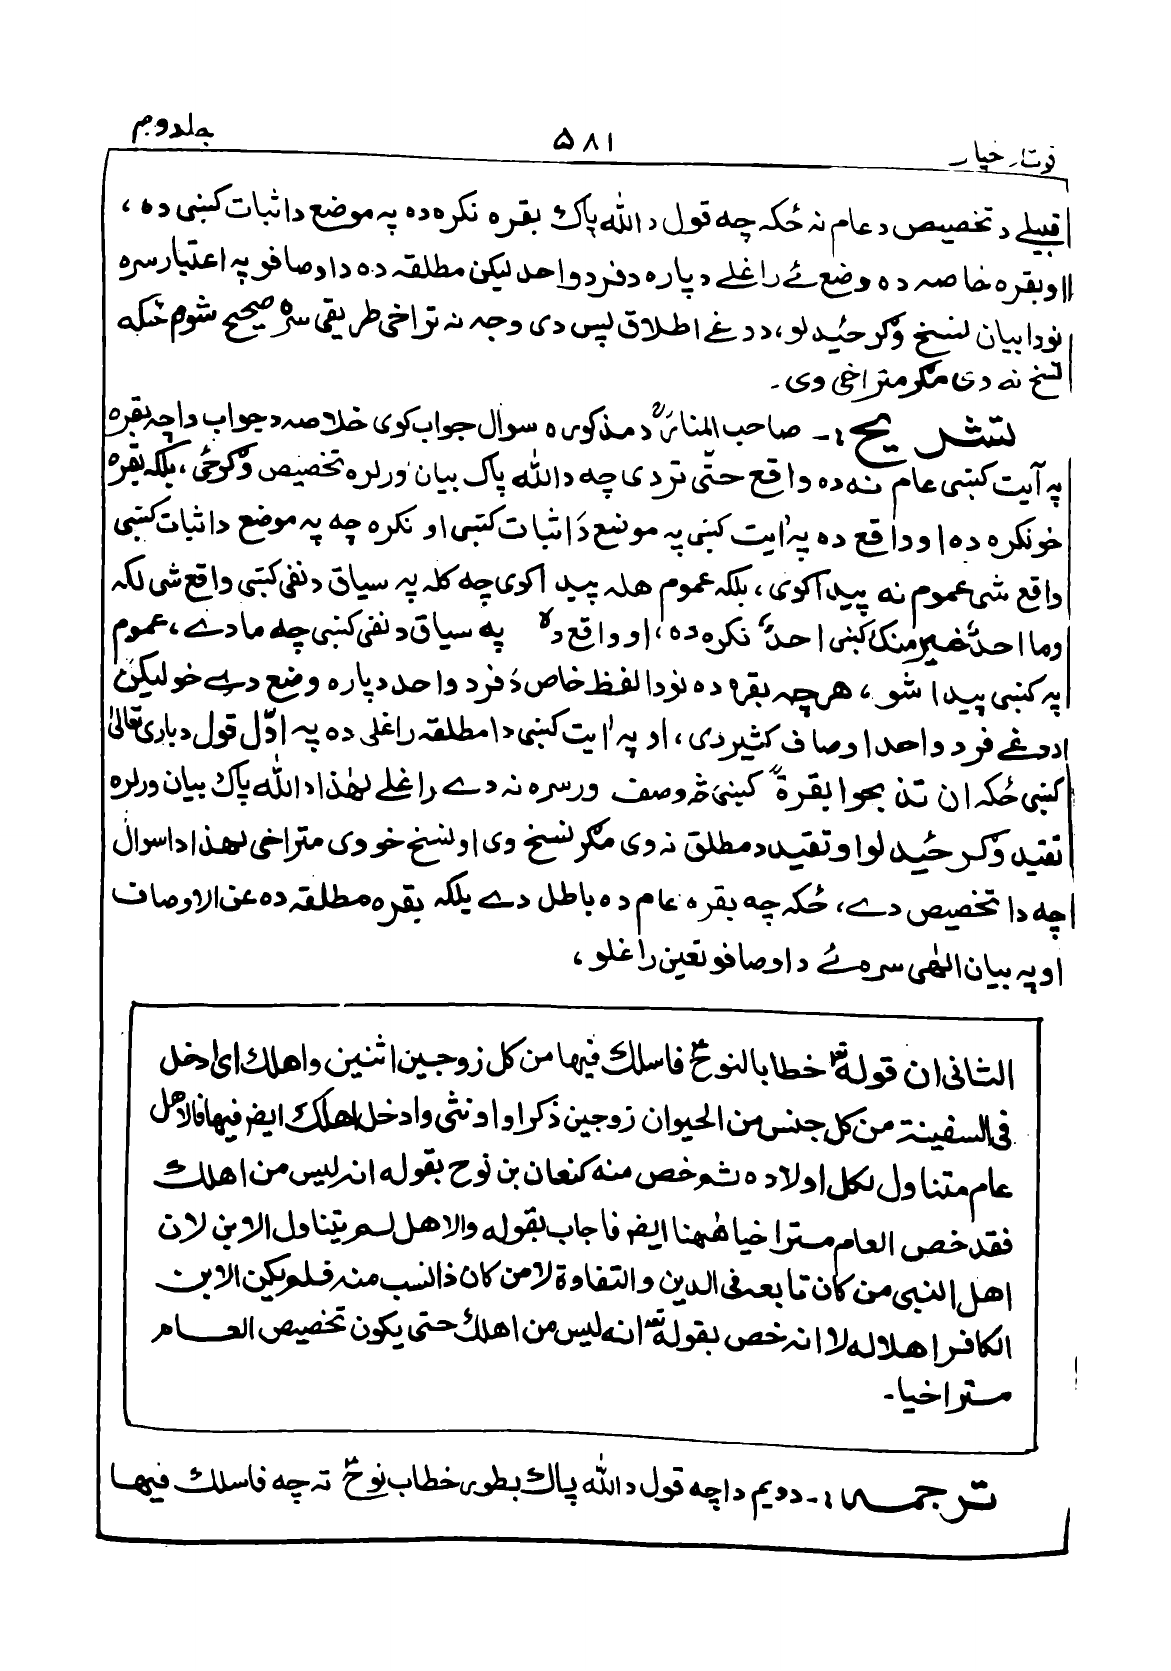 جلد دوم ۵۸۱
قبیلے د تخصیص د عام نہ ځکه چه قول د اللہ پاک بقره نکره ده په موضع د اثبات کښی ده ،
او بقره خاصه ده وضع ئے راغلے دپاره د فرد واحد لیکن مطلقه ده د اوصافو په اعتبار سره
نو دا بیان نسخ وګرځیدلو، د دغے اطلاق پس دی وجه نه تراخی طریقی سره صحیح شوم ځکه
نسخ نه دی مګر متراخی وی ۔
تشریح :۔ صاحب المنارؒ د مذکوره سوال جواب کوی خلاصه د جواب دا چه بقره
په آیت کښی عام نه ده واقع حتّی تردی چه د اللہ پاک بیان ورلره تخصیص وګرځی ، بلکه بقره
خو نکره ده او واقع ده په اٰیت کښی په موضع دَ اثبات کښی او نکره چه په موضع د اثبات کښی
واقع شی عموم نه پیدا کوی ، بلکه عموم هله پیدا کوی چه کله په سیاق د نفی کښی واقع شی لکه
وما احدٌ خیر منک کښی احدٌ نکره ده ، او واقع ده په سیاق د نفی کښی چه ما دے ، عموم
په کښی پیدا شو ، هرچه بقره ده نو دا لفظ خاص دَ فرد واحد دپاره وضع دے خو لیکن
د دغے فرد واحد اوصاف کثیر دی ، او په اٰیت کښی دا مطلقه راغلی ده په اوّل قول د باری تعالیٰ
کښی ځکه ان تذبحوا بقرة کښی څه وصف ورسره نه دے راغلے لهٰذا د اللہ پاک بیان ورلره
تقید وګرځیدلو او تقید د مطلق نه وی مګر نسخ وی او نسخ خو وی متراخی لهذا دا سوال
چه دا تخصیص دے ، ځکه چه بقره عام ده باطل دے بلکه بقره مطلقه ده عن الاوصاف
او په بیان الٰهی سره ئے د اوصافو تعین راغلو ،
الثانی ان قولهٗ تعـ خطابا لنوحؑ فاسلك فیها من کل زوجین اثنین واهلك ای ادخل
فی السفینة من کل جنس من الحیوان زوجین ذکرا وانثی وادخل اهلك ایضـ فیها فالاهل
عام متناول لکل اولاده ثم خص منه کنعان بن نوح بقوله انه لیس من اهلك
فقد خص العام متراخیا ههنا ایضـ فاجاب بقوله والاهل لم یتناول الابن لان
اهل النبی من کان تابعه فی الدین والتقاوة لا من کان ذا نسب منه فلم یکن الابن
الکافر اهلا له لا انه خص بقوله تعـ انه لیس من اهلك حتی یکون تخصیص العام
متراخیا ۔
ترجمه :۔ دویم دا چه قول د اللہ پاک بطوری خطاب نوحؑ ته چه فاسلك فیها